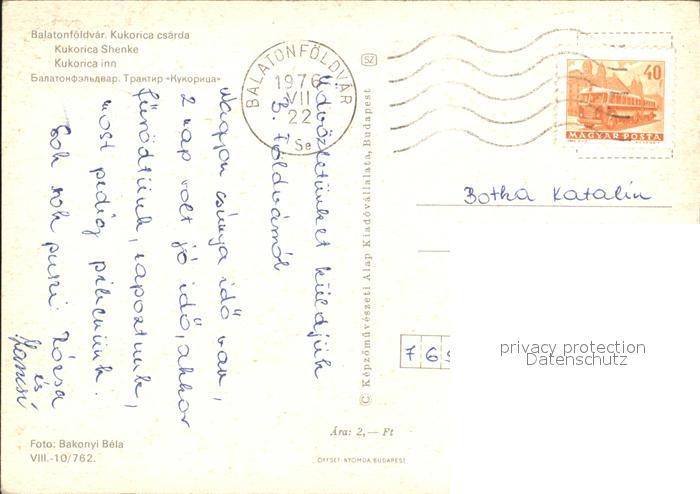 Balatonföldvár. Kukorica csárda
Kukorica Shenke
Kukorica inn
Балатонфэльдвар. Трактир «Кукорица»
BALATONFÖLDVÁR
1976
VII
22
Se
SZ
40
MAGYAR POSTA
Üdvözletünket küldjük
B. Földvárról
Nagyon csúnya idő van,
2 nap volt jó idő, akkor
fürödtünk, napoztunk,
most pedig pihenünk.
Sok sok puszi: Rózsa
és
Botka Katalin
© Képzőművészeti Alap Kiadóvállalata, Budapest
7 6
privacy protection
Datenschutz
Ára: 2,— Ft
Foto: Bakonyi Béla
VIII.-10/762.
OFFSET-NYOMDA, BUDAPEST